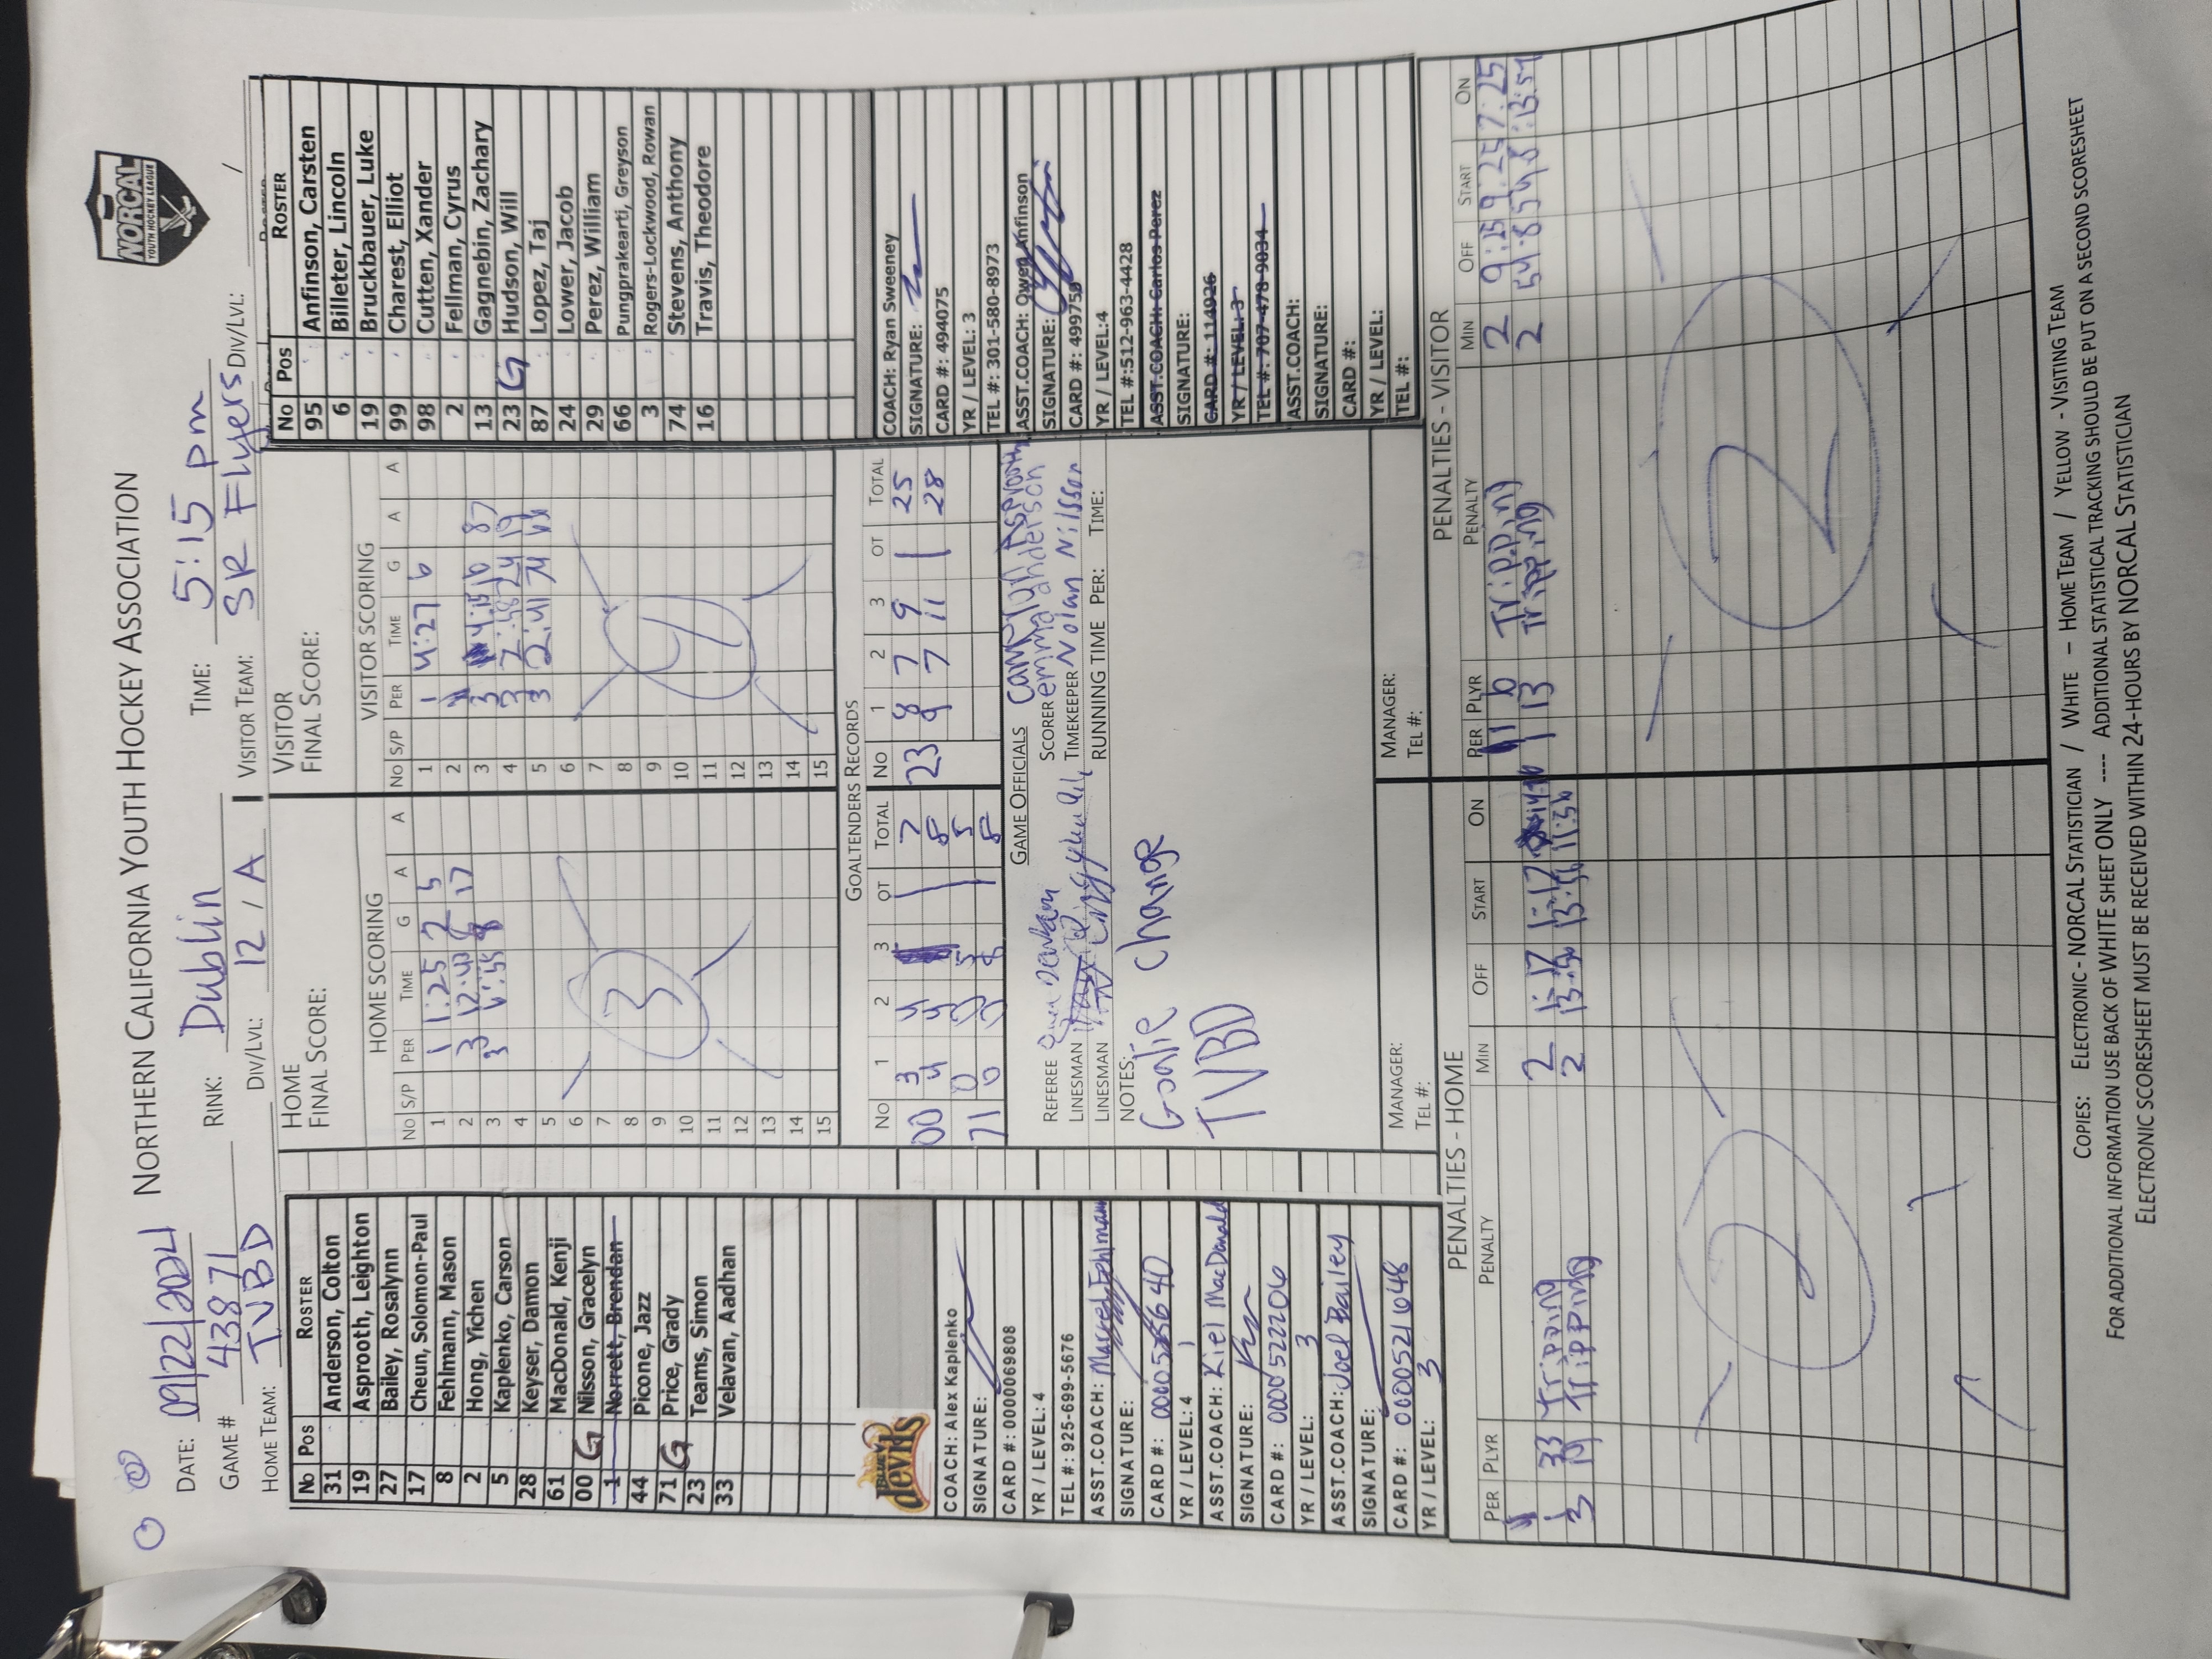 NORTHERN CALIFORNIA YOUTH HOCKEY ASSOCIATION
NORCAL
YOUTH HOCKEY LEAGUE
DATE: 09/22/2024 RINK: Dublin TIME: 5:15 pm
GAME # 43871 DIV/LVL: 12 / A VISITOR TEAM: SR Flyers DIV/LVL: /
HOME TEAM: TVBD
No Pos ROSTER
31 Anderson, Colton
19 Asprooth, Leighton
27 Bailey, Rosalynn
17 Cheun, Solomon-Paul
8 Fehlmann, Mason
2 Hong, Yichen
5 Kaplenko, Carson
28 Keyser, Damon
61 MacDonald, Kenji
00 G Nilsson, Gracelyn
1 Norrett, Brendan
44 Picone, Jazz
71 G Price, Grady
23 Teams, Simon
33 Velavan, Aadhan
BLUE devils
COACH: Alex Kaplenko
SIGNATURE:
CARD #: 0000069808
YR / LEVEL: 4
TEL #: 925-699-5676
ASST.COACH: Marcel Fehlmann
SIGNATURE:
CARD #:
YR / LEVEL: 4 1
ASST.COACH: Kiel MacDonald
SIGNATURE:
CARD #: 0000522206
YR / LEVEL: 3
ASST.COACH: Joel Bailey
SIGNATURE:
CARD #: 0000521648
YR / LEVEL: 3
HOME
FINAL SCORE:
HOME SCORING
No S/P PER TIME G A A
1 1 1:25 2 5
2 3 12:48 8 17
3 3 8
4
5
6
7
8
9
10
11
12
13
14
15
3
VISITOR
FINAL SCORE:
VISITOR SCORING
No S/P PER TIME G A A
1 1 4:27 6
2
3 3 4:15 16 87
4 3 2:58 24 19
5 3 2:41 74
6
7
8
9
10
11
12
13
14
15
GOALTENDERS RECORDS
No 1 2 3 OT TOTAL No 1 2 3 OT TOTAL
00 3 4 7 23 8 7 9 25
4 4 8 9 7 11 28
71 0 5 5
0 8
GAME OFFICIALS
REFEREE
LINESMAN
LINESMAN
SCORER emma anderson
TIMEKEEPER Nolan Nilsson
RUNNING TIME PER: TIME:
NOTES:
Goalie Change
TVBD
MANAGER:
TEL #:
MANAGER:
TEL #:
No Pos ROSTER
95 Anfinson, Carsten
6 Billeter, Lincoln
19 Bruckbauer, Luke
99 Charest, Elliot
98 Cutten, Xander
2 Fellman, Cyrus
13 Gagnebin, Zachary
23 G Hudson, Will
87 Lopez, Taj
24 Lower, Jacob
29 Perez, William
66 Pungprakearti, Greyson
3 Rogers-Lockwood, Rowan
74 Stevens, Anthony
16 Travis, Theodore
COACH: Ryan Sweeney
SIGNATURE:
CARD #: 494075
YR / LEVEL: 3
TEL #: 301-580-8973
ASST.COACH: Owen Anfinson
SIGNATURE:
CARD #: 499759
YR / LEVEL:4
TEL #:512-963-4428
ASST.COACH: Carlos Perez
SIGNATURE:
CARD #: 1114926
YR / LEVEL: 3
TEL #: 707-478-9034
ASST.COACH:
SIGNATURE:
CARD #:
YR / LEVEL:
TEL #:
PENALTIES - HOME
PER PLYR PENALTY MIN OFF START ON
1 33 Tripping 2 1:17 1:17
3 19 Tripping 2 13:56 13:56 11:56
2
PENALTIES - VISITOR
PER PLYR PENALTY MIN OFF START ON
1 6 Tripping 2 9:25 7:25
1 13 Tripping 2
2
COPIES: ELECTRONIC - NORCAL STATISTICIAN / WHITE – HOME TEAM / YELLOW - VISITING TEAM
FOR ADDITIONAL INFORMATION USE BACK OF WHITE SHEET ONLY ---- ADDITIONAL STATISTICAL TRACKING SHOULD BE PUT ON A SECOND SCORESHEET
ELECTRONIC SCORESHEET MUST BE RECEIVED WITHIN 24-HOURS BY NORCAL STATISTICIAN